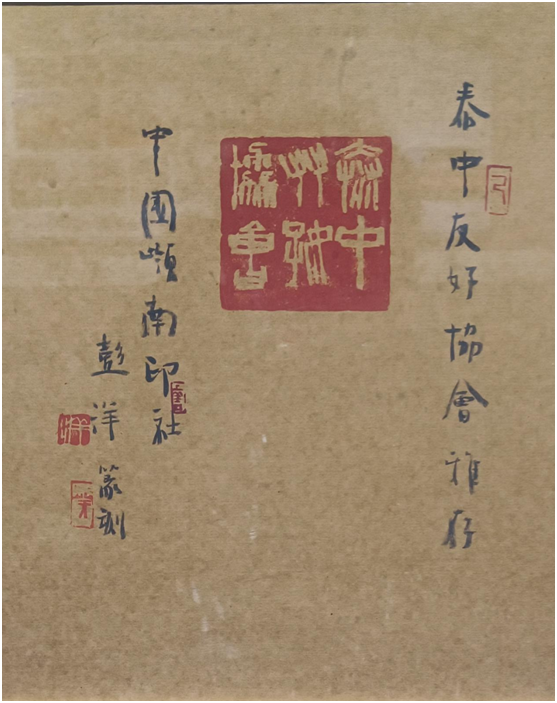 泰中友好協會雅存
泰中
友好
協會
中國嶺南印社
彭洋篆刻